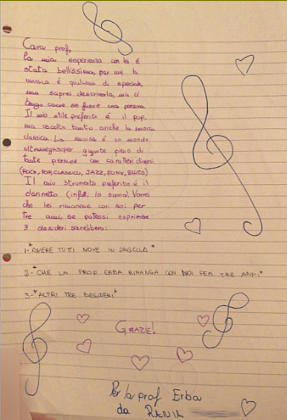 Cara prof,
la mia esperienza con lei è
stata bellissima, per me la
musica è qualcosa di speciale,
non saprei descriverla, ma ci
tengo come se fosse una persona.
Il mio stile preferito è il pop,
ma ascolto tanto anche la musica
classica. La musica è un mondo
gigante pieno di
tante persone con caratteri diversi
(ROCK, POP, CLASSICO, JAZZ, FUNK, BLUES)
Il mio strumento preferito è il
clarinetto (infatti lo suono). Vorrei
che lei rimanesse con noi per
tre anni, se potessi esprimere
3 desideri sarebbero:
1-"AVERE TUTTI NOVE IN PAGELLA"
2-"CHE LA PROF ERBA RIMANGA CON NOI PER TRE ANNI"
3-"ALTRI TRE DESIDERI"
GRAZIE!
Per la prof Erba
da RANIA